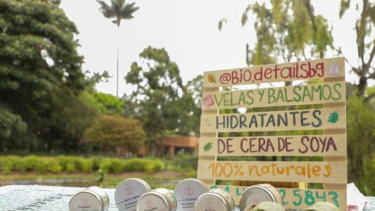 @BIO.DETAILSBG
VELAS Y BALSAMOS
HIDRATANTES
DE CERA DE SOYA
100% NATURALES